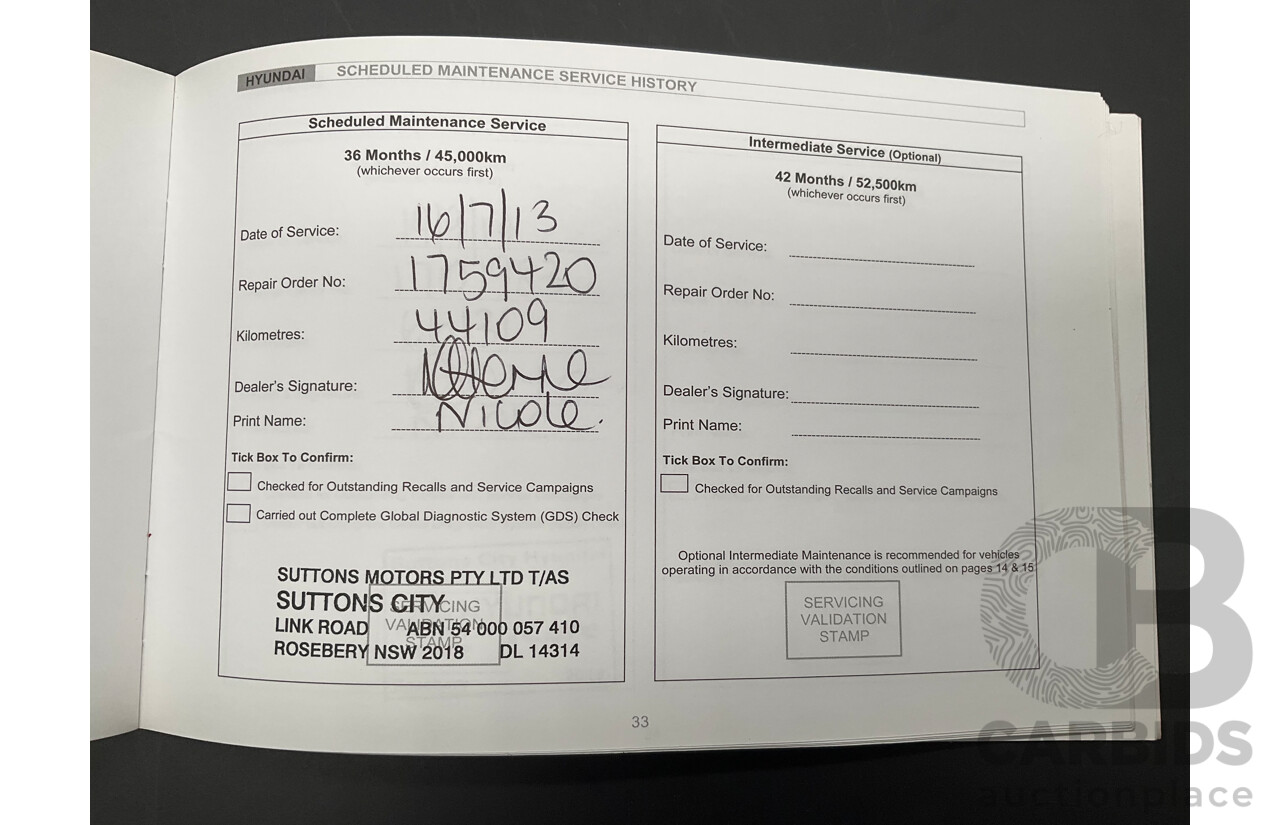 HYUNDAI SCHEDULED MAINTENANCE SERVICE HISTORY
Scheduled Maintenance Service
36 Months / 45,000km
(whichever occurs first)
Date of Service: 16/7/13
Repair Order No: 1759420
Kilometres: 44109
Dealer's Signature:
Print Name: Nicole.
Tick Box To Confirm:
Checked for Outstanding Recalls and Service Campaigns
Carried out Complete Global Diagnostic System (GDS) Check
SUTTONS MOTORS PTY LTD T/AS
SUTTONS CITY
LINK ROAD ABN 54 000 057 410
ROSEBERY NSW 2018 DL 14314
SERVICING
VALIDATION
STAMP
Intermediate Service (Optional)
42 Months / 52,500km
(whichever occurs first)
Date of Service:
Repair Order No:
Kilometres:
Dealer's Signature:
Print Name:
Tick Box To Confirm:
Checked for Outstanding Recalls and Service Campaigns
Optional Intermediate Maintenance is recommended for vehicles
operating in accordance with the conditions outlined on pages 14 & 15
SERVICING
VALIDATION
STAMP
33
CB
CARBIDS
auctionplace